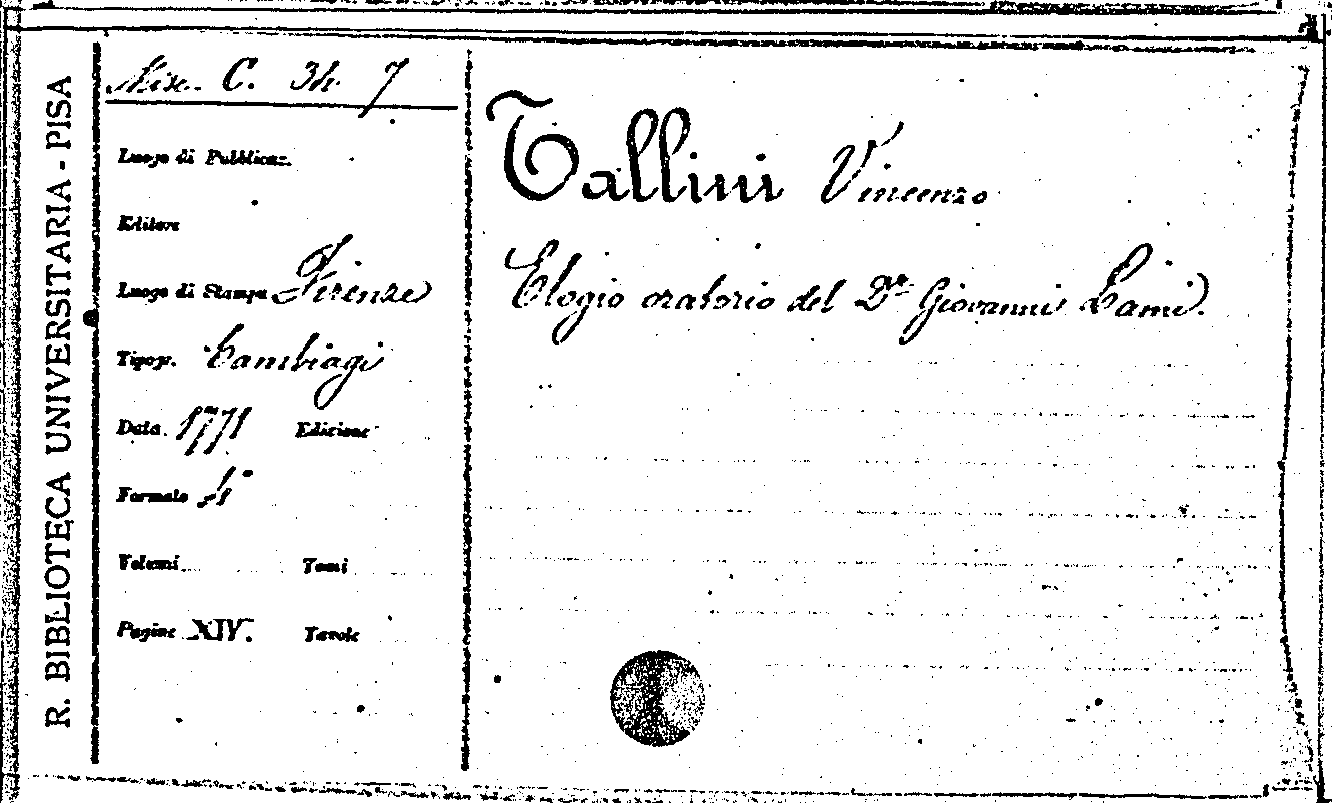 R. BIBLIOTECA UNIVERSITARIA - PISA
Misc. C. 34 7
Luogo di Pubblicaz.
Editore
Luogo di Stampa Firenze
Tipogr. Cambiagi
Data 1771 Edizione
Formato 4°
Volumi Tomi
Pagine XIV. Tavole
Tallini Vincenzo
Elogio oratorio del Dr. Giovanni Lami.